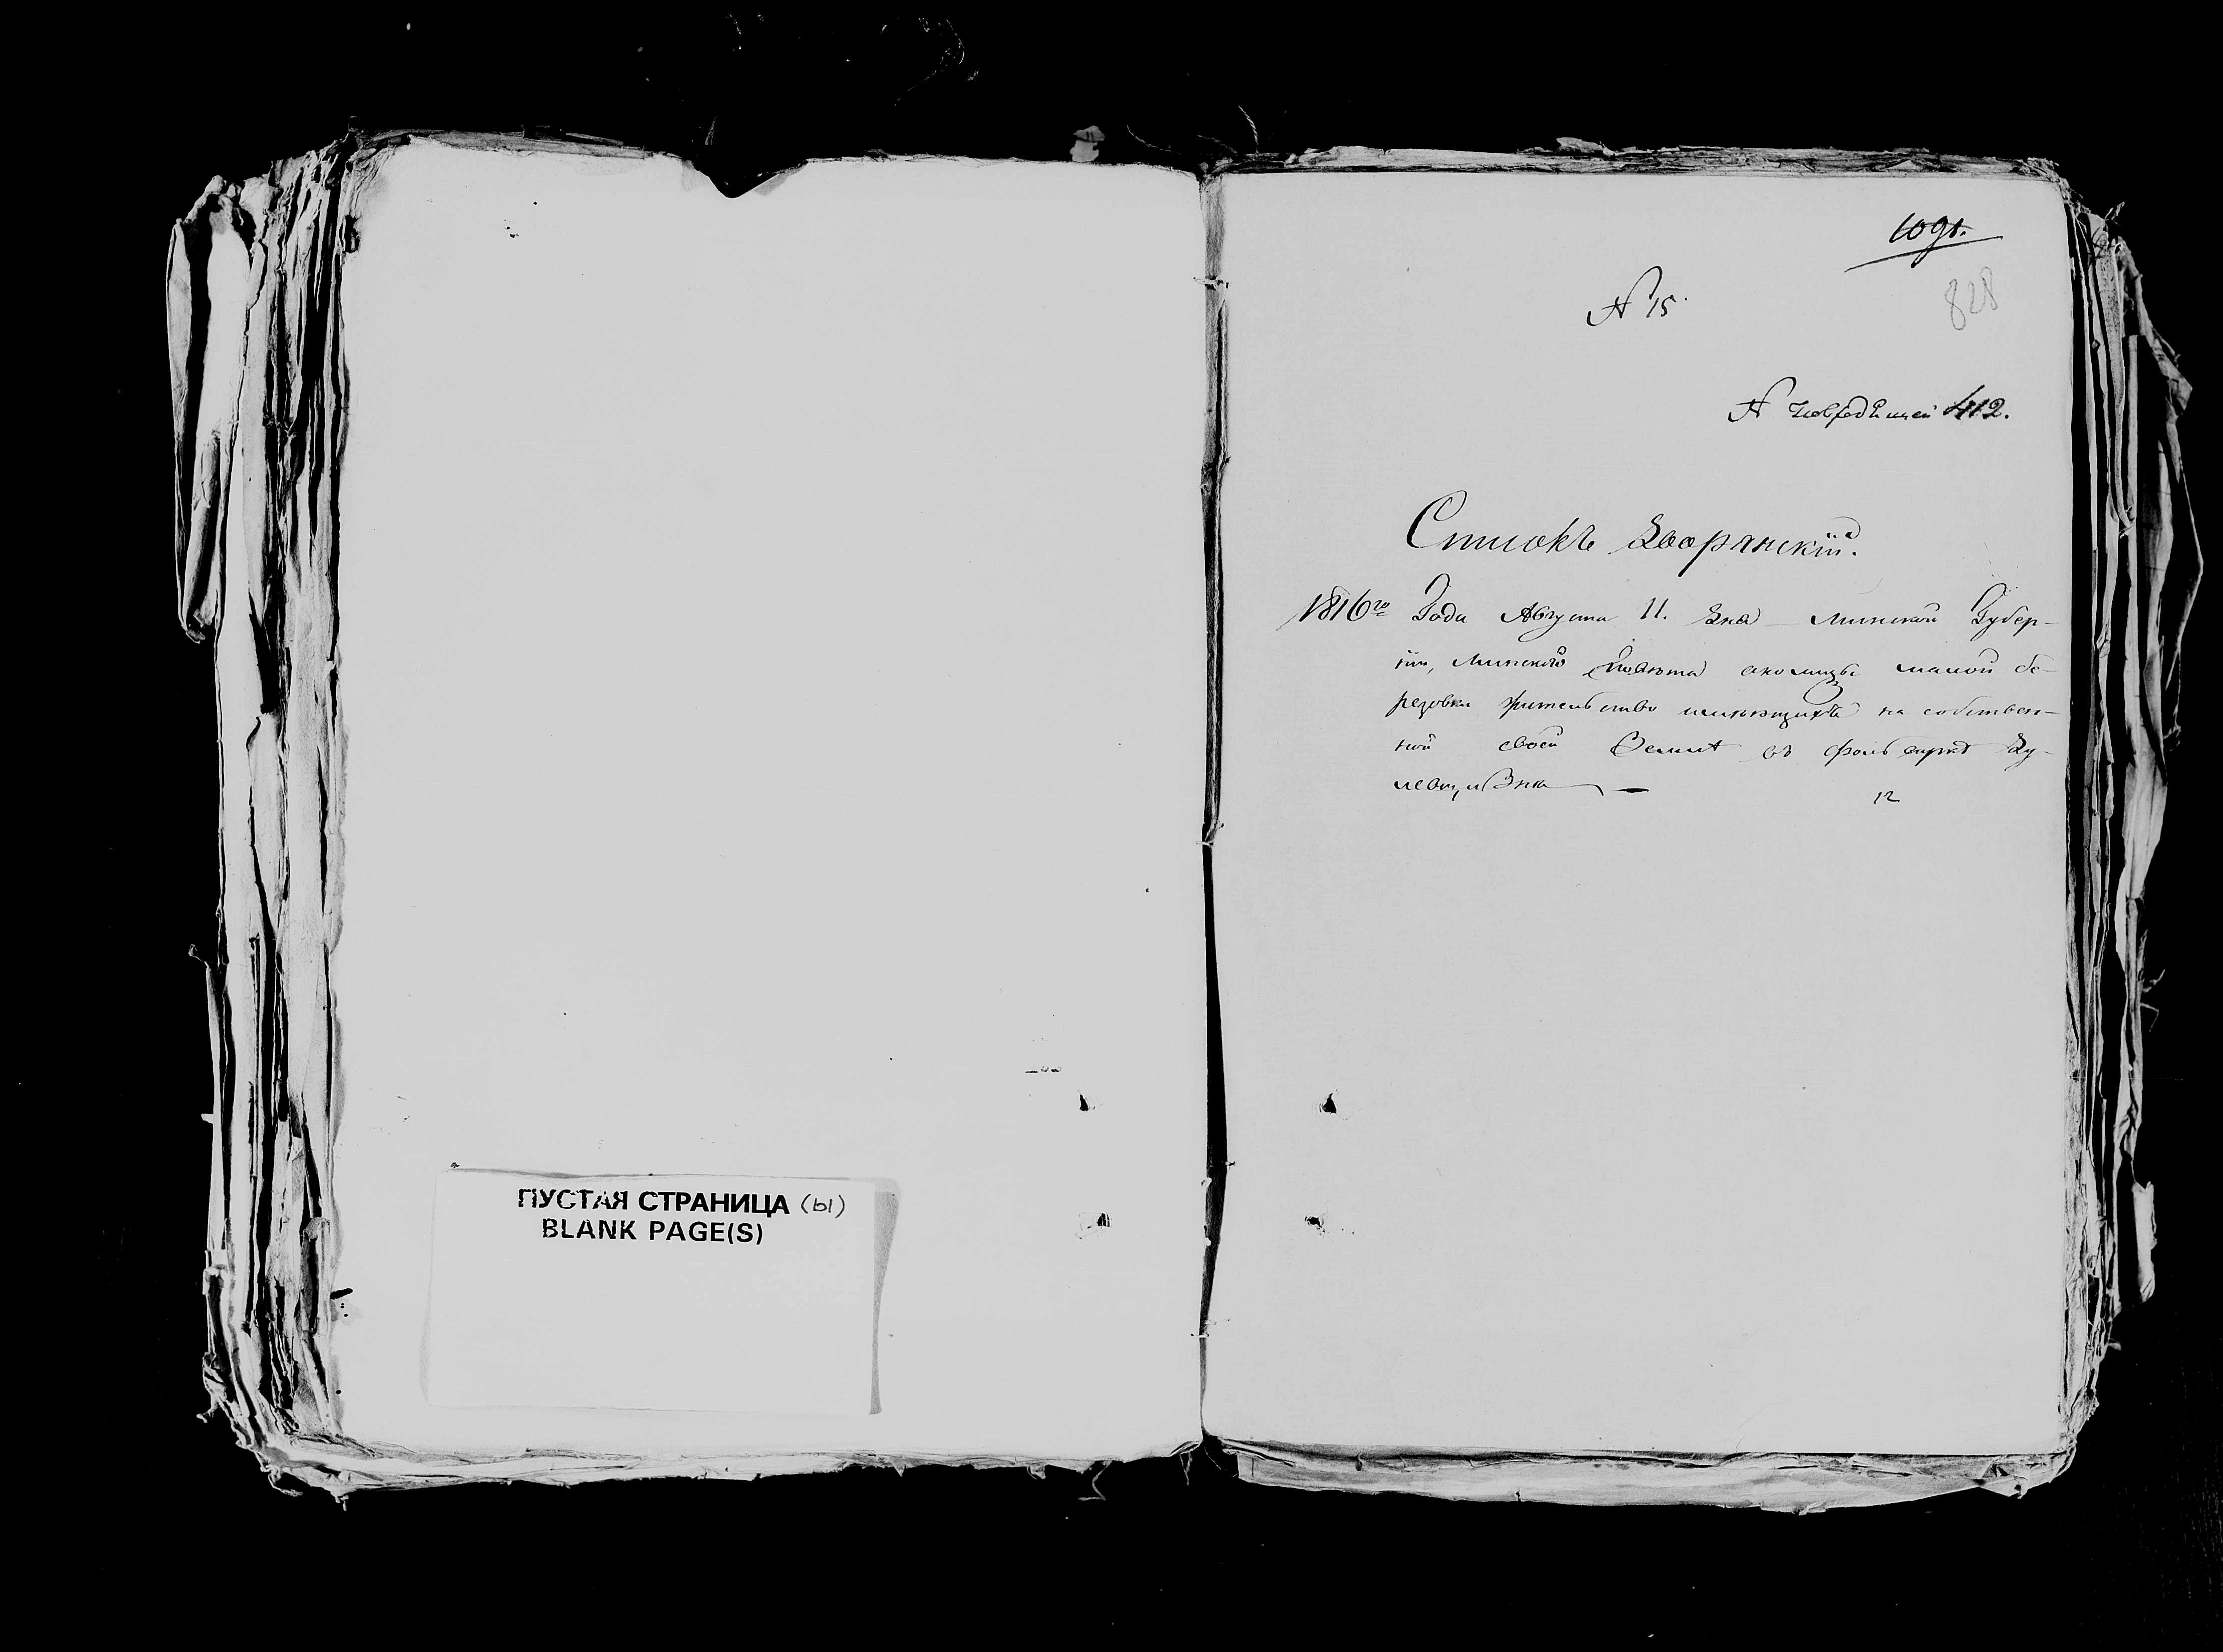 ПУСТАЯ СТРАНИЦА (ы)
BLANK PAGE(S)
1091.
828
№ 15.
№ 412.
Списокъ Дворянскій.
1816го Года Августа 11. дня Минской Губер-
ніи, Минского Повѣта околицы малой бе-
резовки жительство имеющихъ на собствен-
ной своей Землѣ въ фольваркѣ Ду-
12